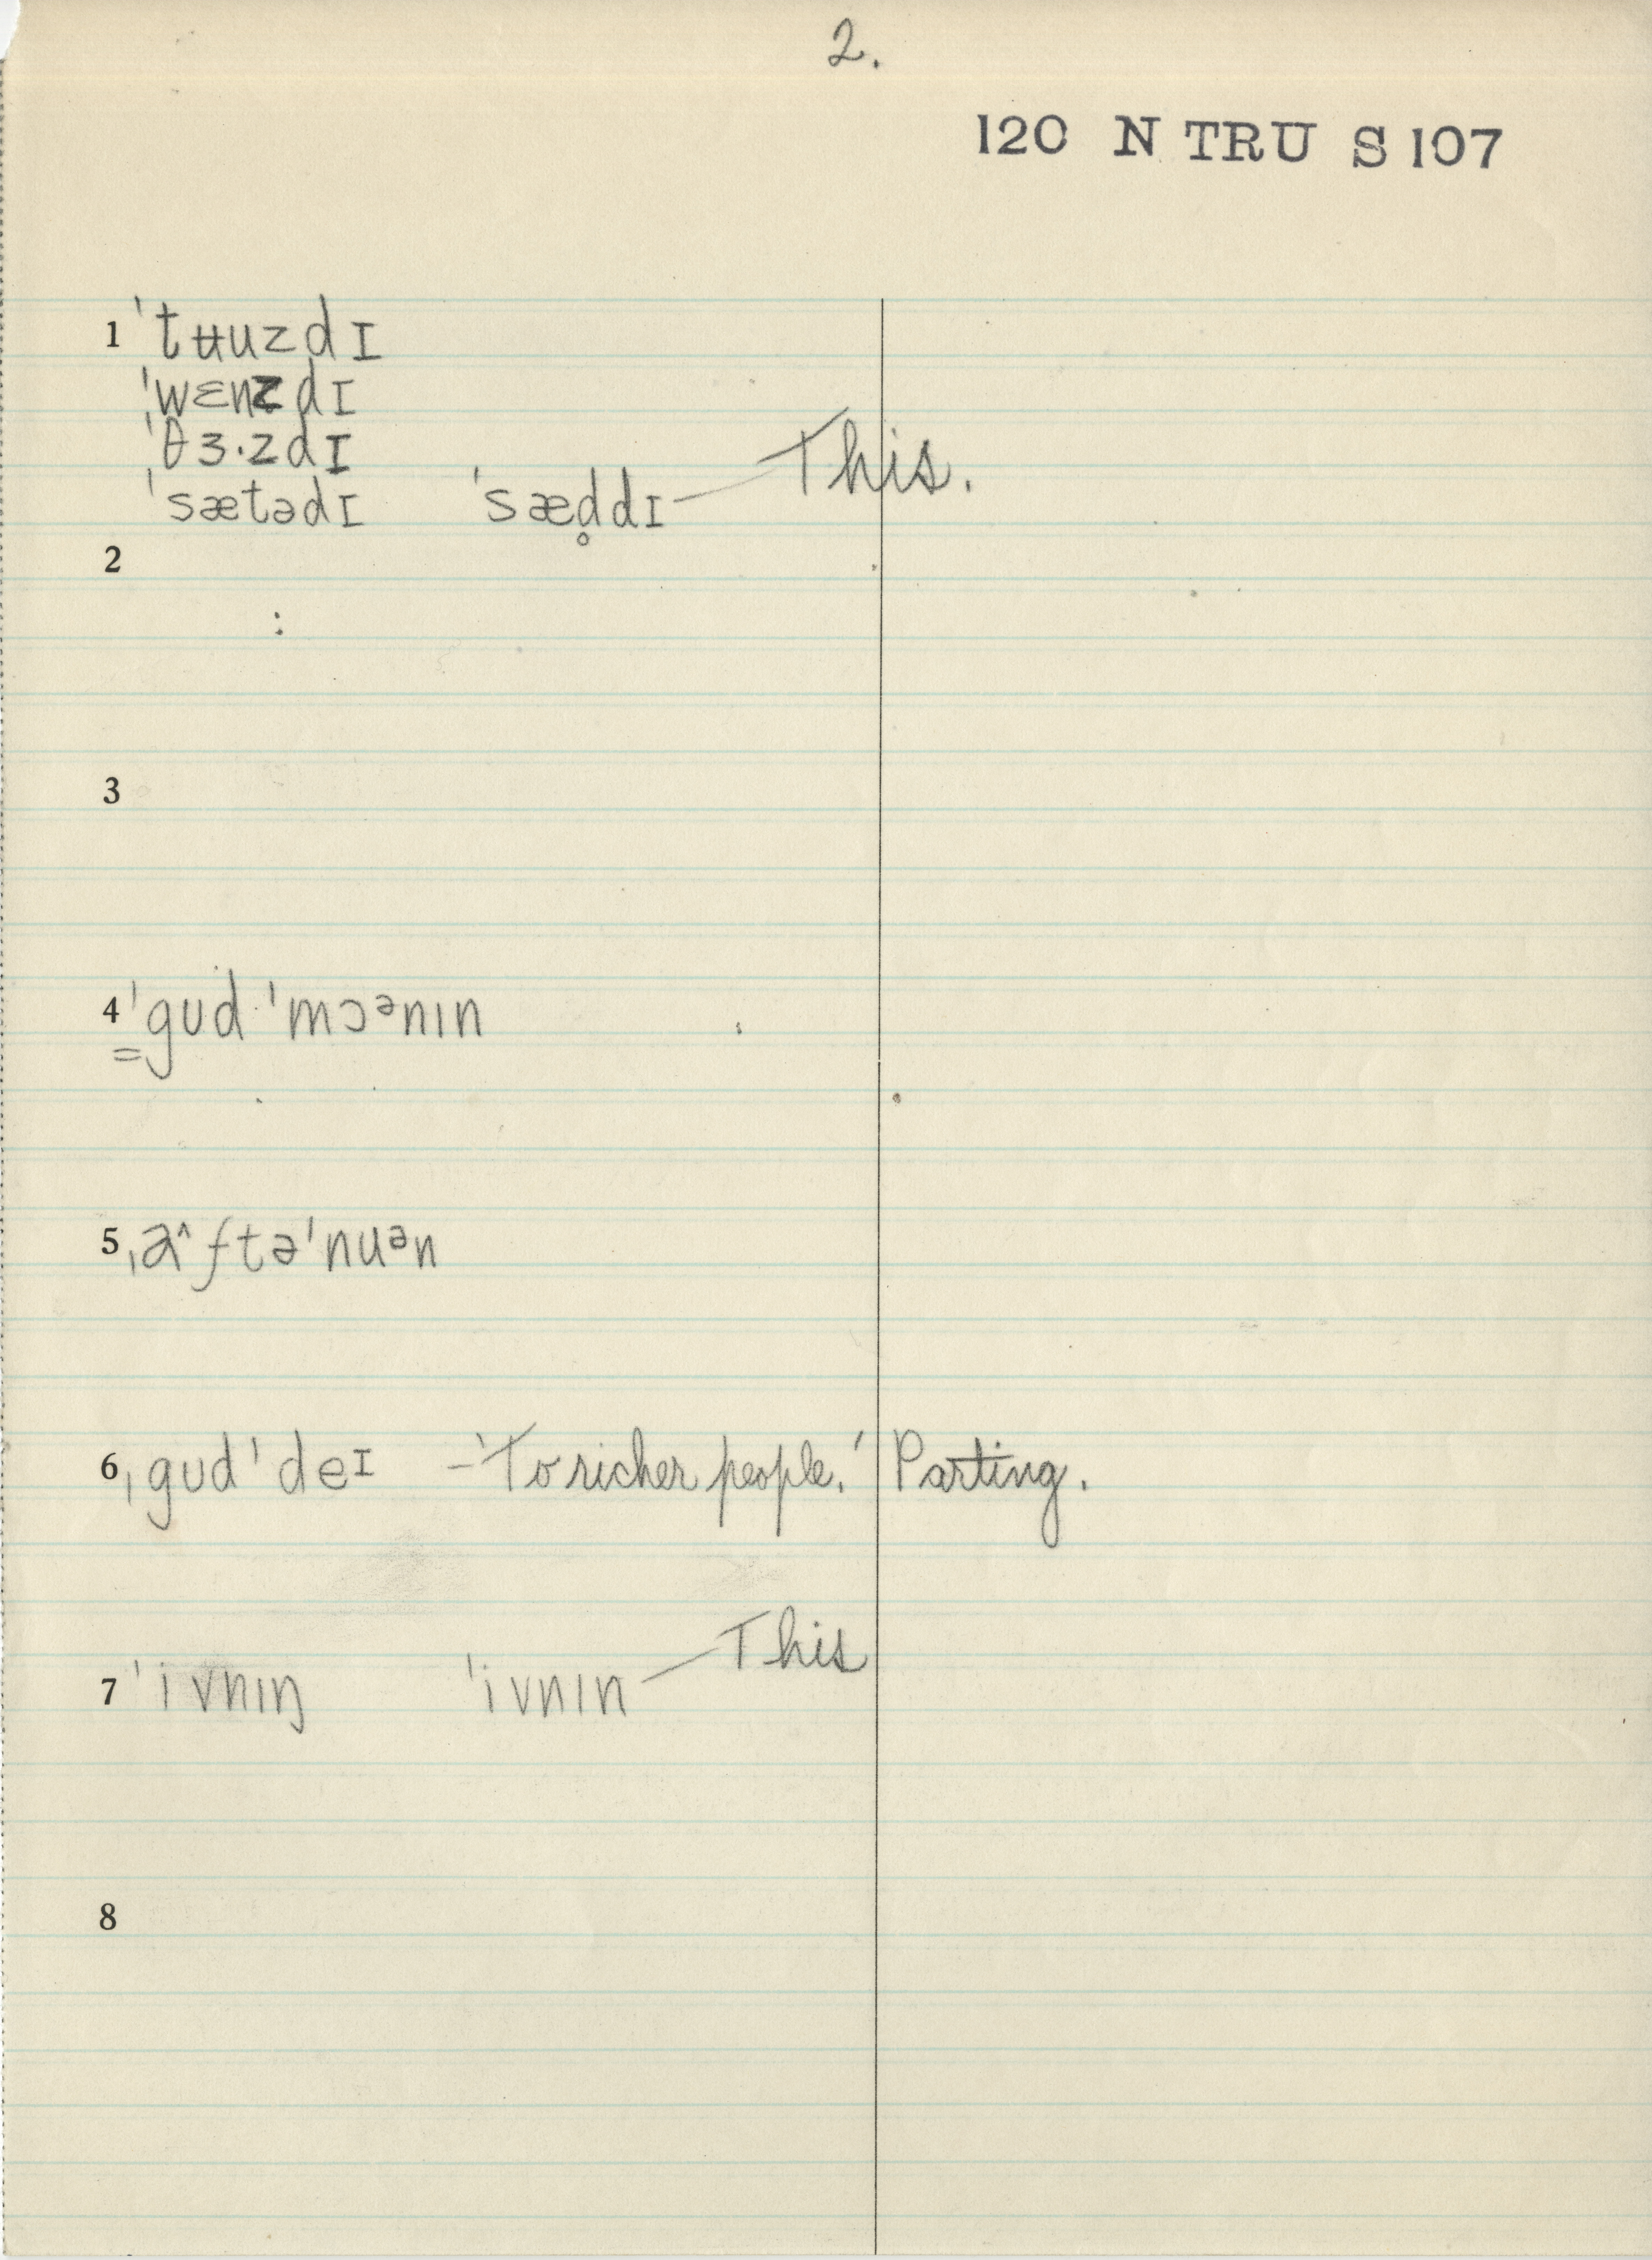 2.
120 N TRU S 107
1 ˈtʉuzdɪ
ˈwɛnzdɪ
ˈθɜ·zdɪ
ˈsætədɪ ˈsæd̥dɪ — This.
2
3
4 ˈgud ˈmɔᵊnɪn
5 ˌa̲^ftəˈnuᵊn
6 ˌgudˈdeɪ – 'To richer people.' Parting.
7 ˈivnɪŋ ˈivnɪn — This
8